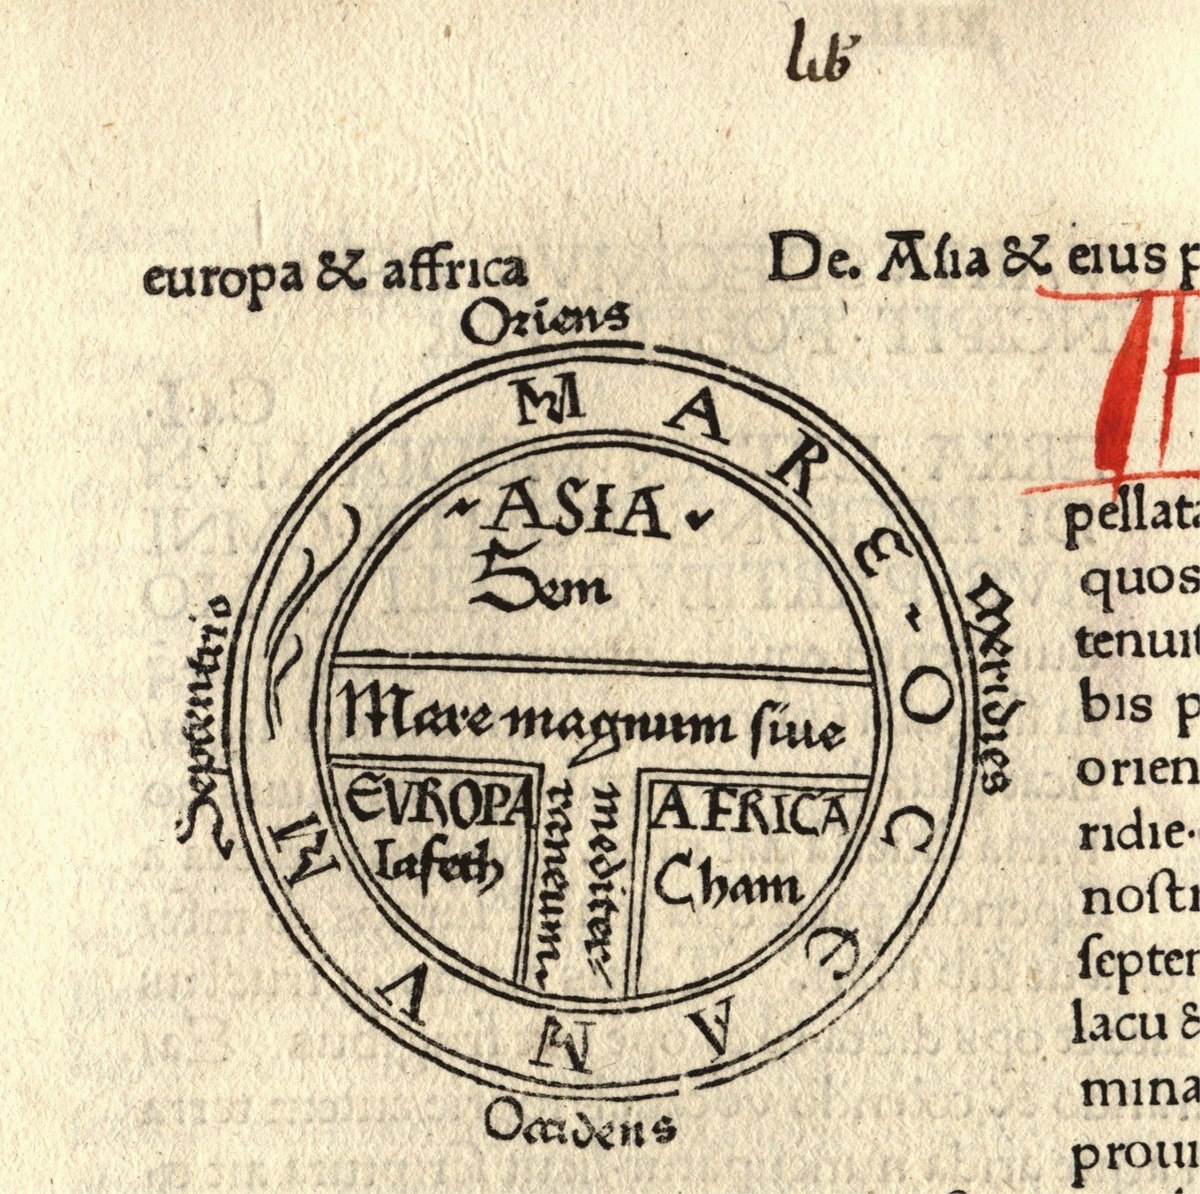 lib
europa & affrica
De. Asia & eius p
Oriens
MARE OCCEANVM
ASIA
Sem
Septentrio
Meridies
Mare magnum siue
mediter
raneum
EVROPA
Iafeth
AFRICA
Cham
Occidens
pellata
quos
tenuit
bis p
orien
ridie.
nostr
septen
lacu &
mina
proui